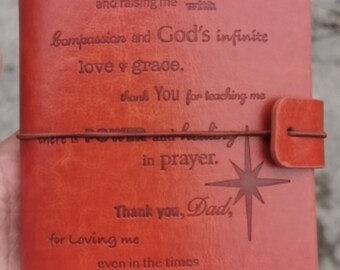 and raising me with
Compassion and God's infinite
love & grace.
thank You for teaching me
there is POWER and healing
in prayer.
Thank you, Dad,
for Loving me
even in the times